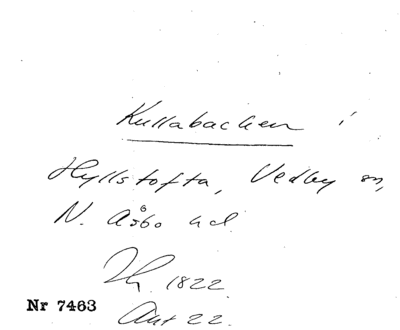 Kullabacken i
Hyllstofta, Vedby sn,
N. Åsbo hd.
Th. 1822.
Nr 7463
Akt 22.